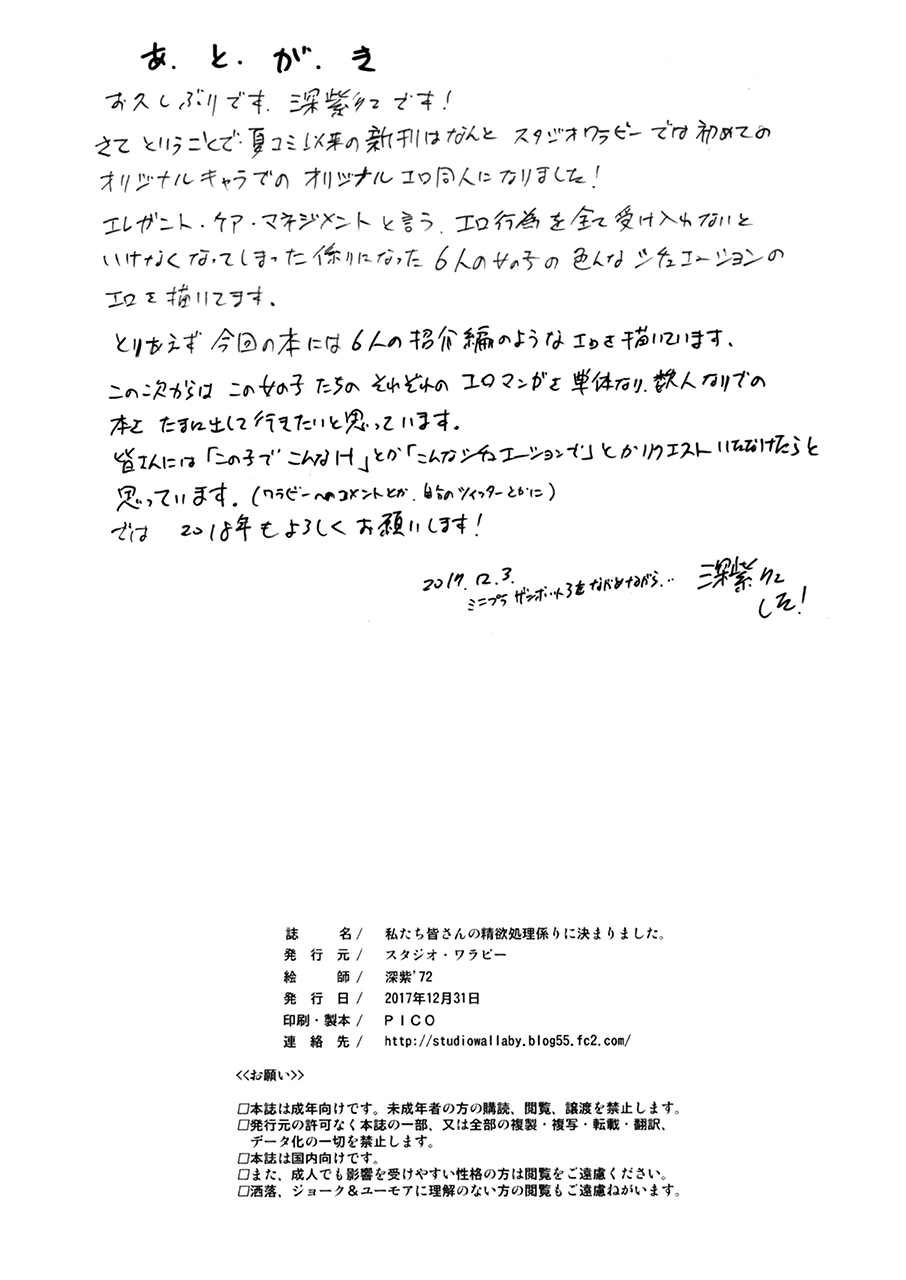 あ.と.が.き
お久しぶりです.深紫'72です!
さてということで.夏コミ以来の新刊はなんと スタジオワラビーでは初めての
オリジナルキャラでの オリジナルエロ同人になりました!
エレガント・ケア・マネジメントと言う.エロ行為を全て受け入れないと
いけなくなってしまった係りになった6人の女の子の色んなシチュエーションの
エロを描いてます.
とりあえず今回の本には6人の招介編のようなエロを描いています.
この次からはこの女の子たちのそれぞれのエロマンガを単体なり.数人なりでの
本を たまに出して行きたいと思っています.
皆さんには「この子でこんなH」とか「こんなシチュエーションで」とかリクエストいただけたらと
思っています.(ワラビーへのコメントとか.自分のツイッターとかに)
では 2018年もよろしくお願いします!
2017.12.3.
ミニプラ ザンボット3をながめながら...
深紫'72
した!
誌名/ 私たち皆さんの精欲処理係りに決まりました。
発行元/ スタジオ・ワラビー
絵師/ 深紫'72
発行日/ 2017年12月31日
印刷・製本/ PICO
連絡先/ http://studiowallaby.blog55.fc2.com/
<<お願い>>
□本誌は成年向けです。未成年者の方の購読、閲覧、譲渡を禁止します。
□発行元の許可なく本誌の一部、又は全部の複製・複写・転載・翻訳、
データ化の一切を禁止します。
□本誌は国内向けです。
□また、成人でも影響を受けやすい性格の方は閲覧をご遠慮ください。
□洒落、ジョーク＆ユーモアに理解のない方の閲覧もご遠慮ねがいます。